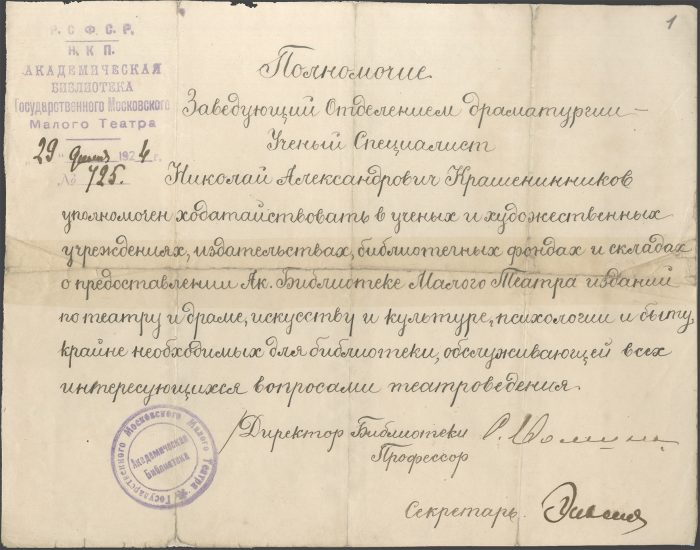 1
Р.С.Ф.С.Р.
Н.К.П.
АКАДЕМИЧЕСКАЯ
БИБЛИОТЕКА
Государственного Московского
Малого Театра
29 1924 г.
№ 725.
Полномочие
Заведующий Отделением драматургии —
Ученый Специалист
Николай Александрович Крашенинников
уполномочен ходатайствовать в ученых и художественных
учреждениях, издательствах, библиотечных фондах и складах
о предоставлении Ак. Библиотеке Малого Театра изданий
по театру и драме, искусству и культуре, психологии и быту,
крайне необходимых для библиотеки, обслуживающей всех
интересующихся вопросами театроведения.
Директор Библиотеки
Профессор
Секретарь
Государственного Московского Малого Театра
Академическая
Библиотека